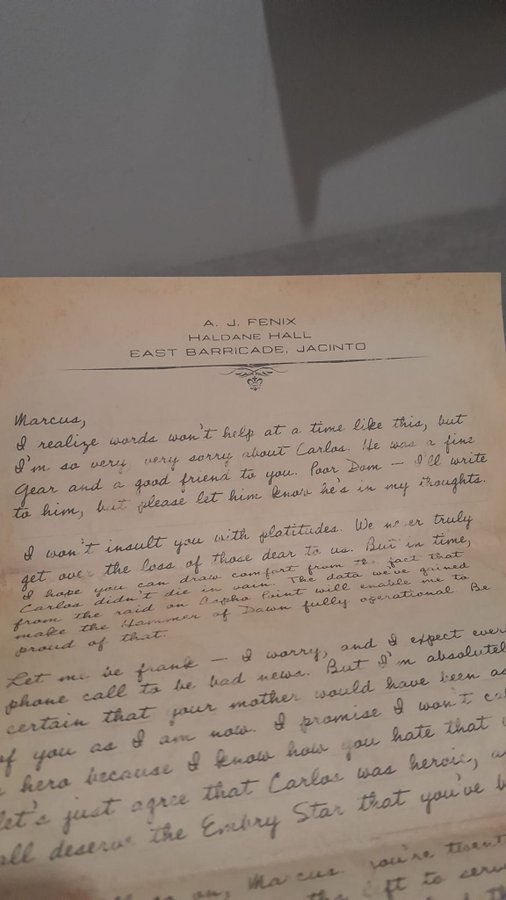 A. J. FENIX
HALDANE HALL
EAST BARRICADE, JACINTO
Marcus,
I realize words won't help at a time like this, but
I'm so very, very sorry about Carlos. He was a fine
Gear and a good friend to you. Poor Dom — I'll write
to him, but please let him know he's in my thoughts.
I won't insult you with platitudes. We never truly
get over the loss of those dear to us. But in time,
I hope you can draw comfort from the fact that
Carlos didn't die in vain. The data we've gained
from the raid on Aspho Point will enable me to
make the Hammer of Dawn fully operational. Be
proud of that.
Let me be frank — I worry, and I expect ever
phone call to be bad news. But I'm absolutel
certain that your mother would have been as
of you as I am now. I promise I won't ca
hero because I know how you hate that
let's just agree that Carlos was heroic, a
all deserve the Embry Star that you've b
on, Marcus. you're twent
the left to serv